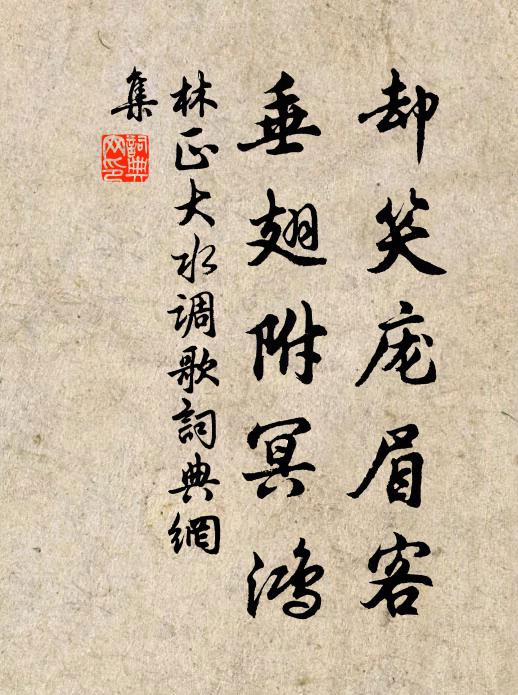 却笑庞眉客
垂翅附冥鸿
林正大水调歌詞典網
集
詞典網印